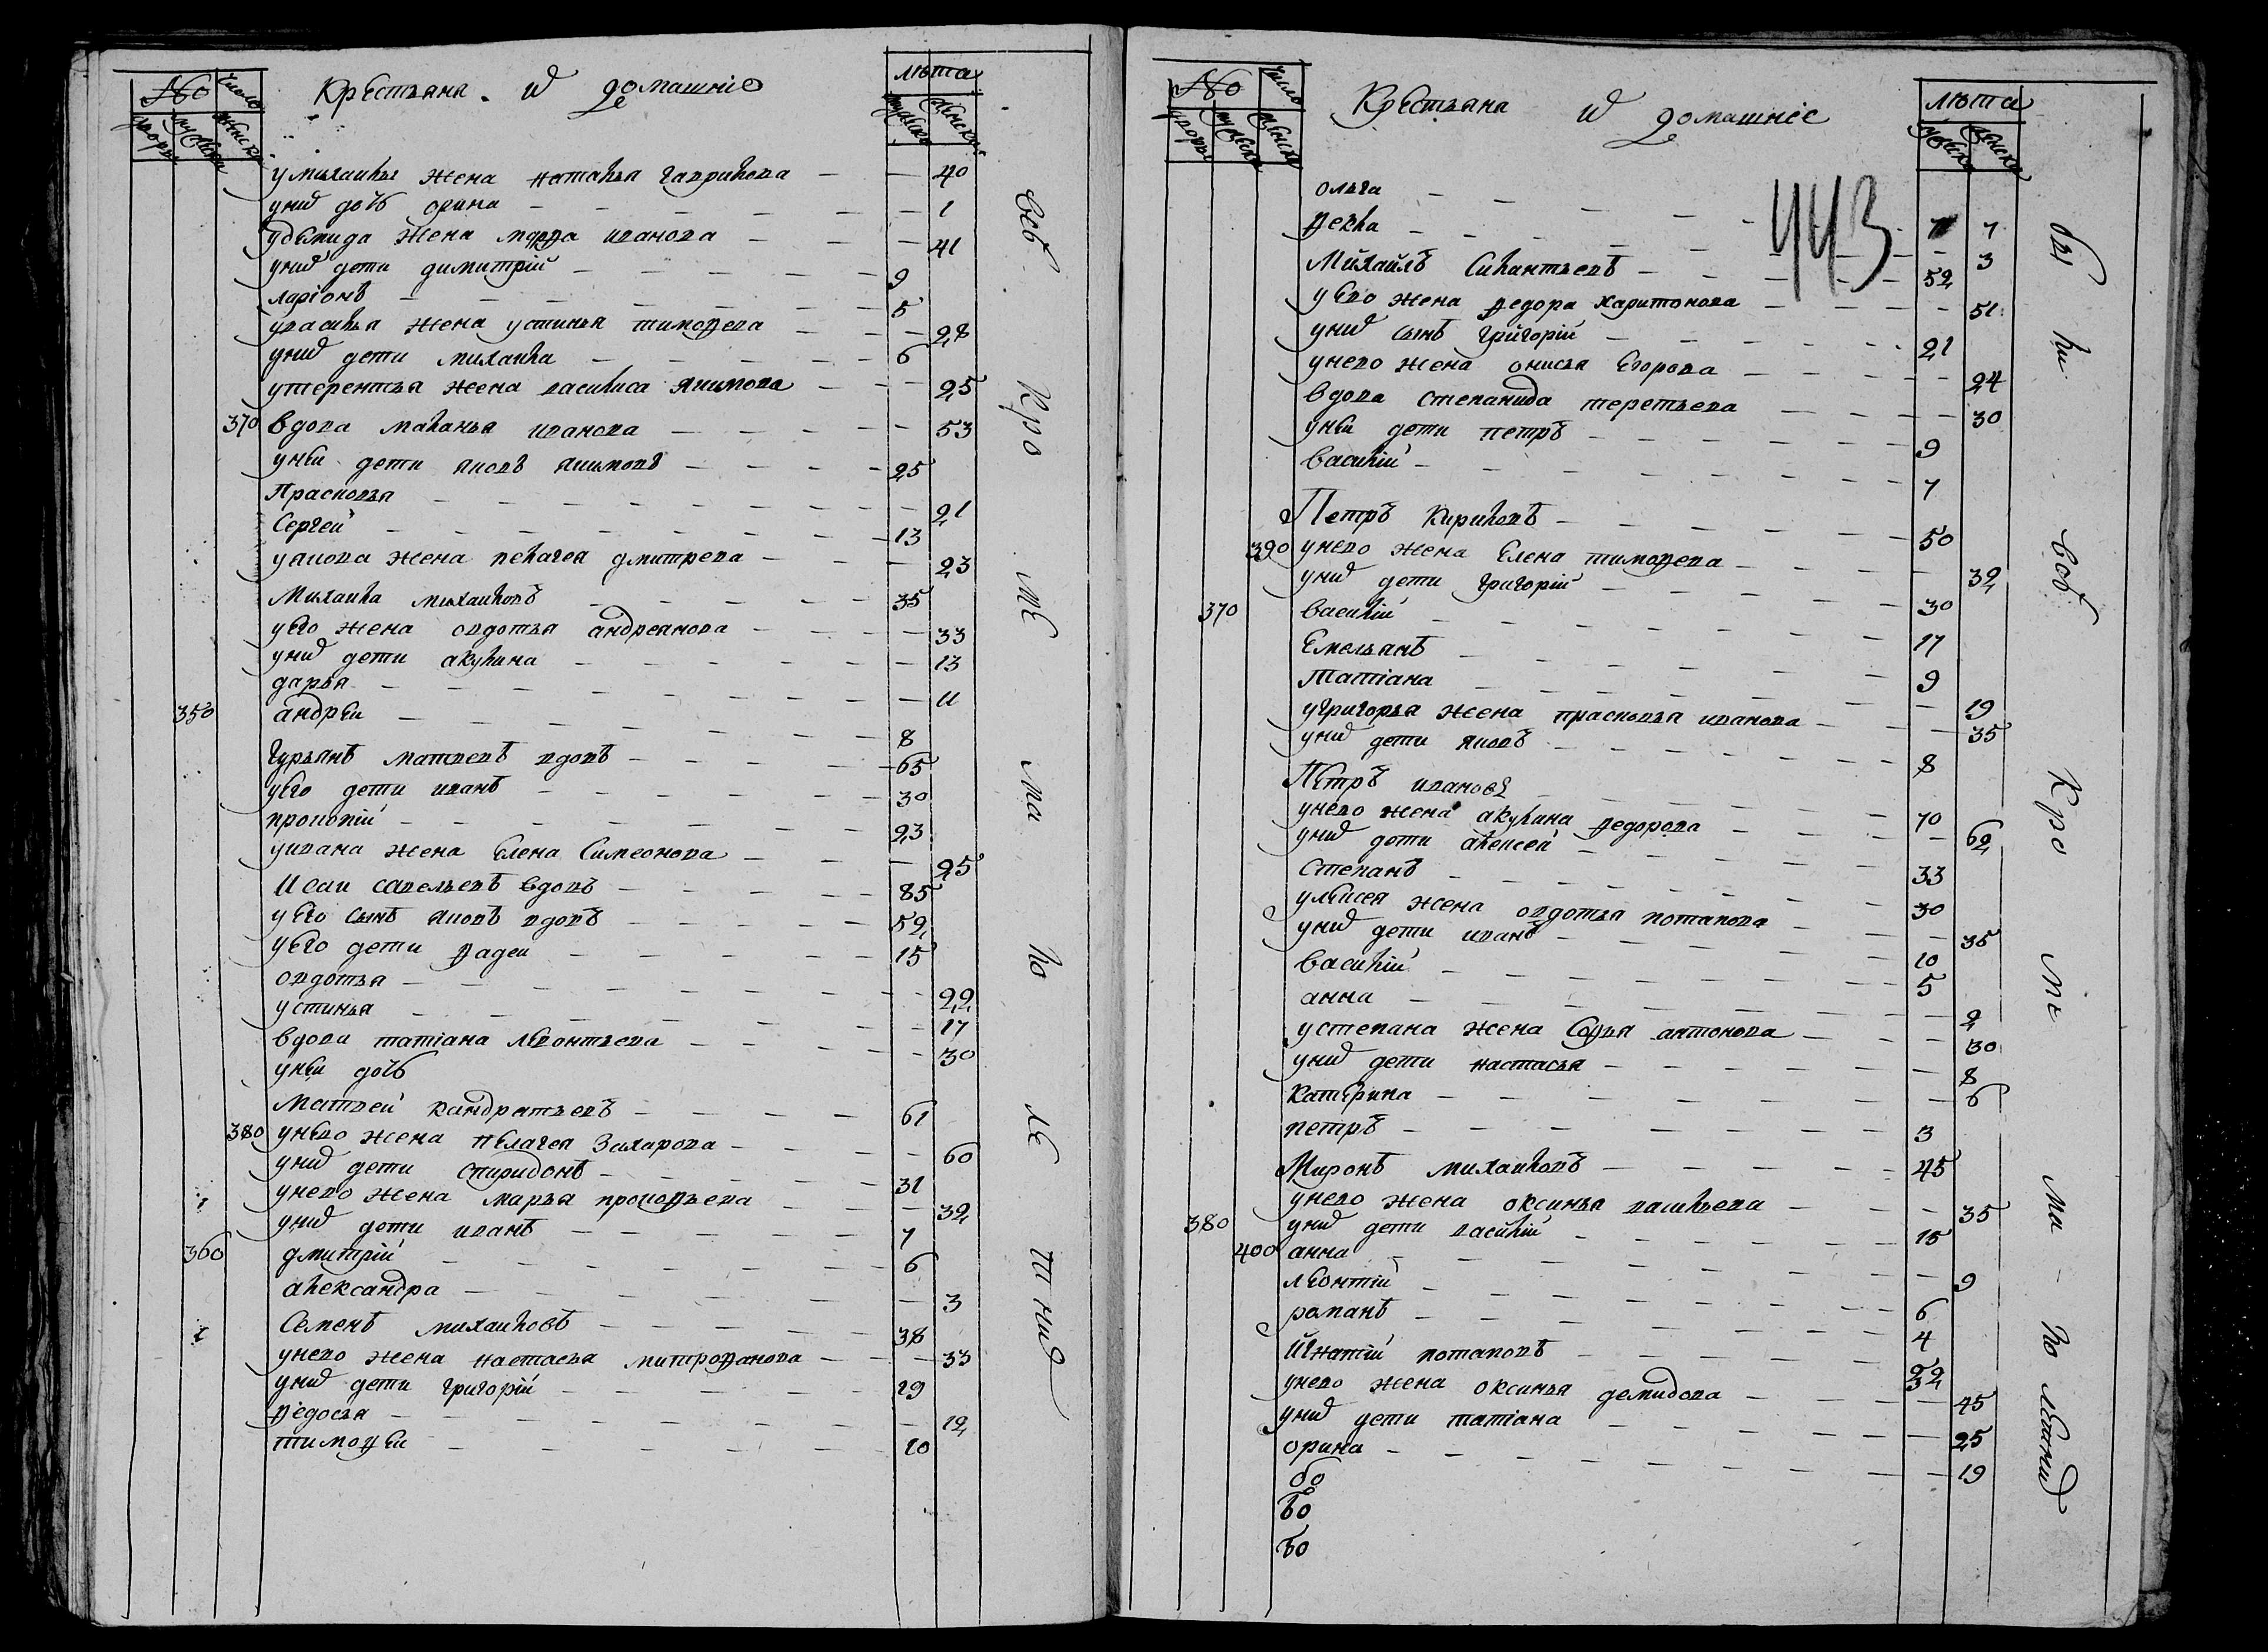 № Число лѣта
Крестьяна и домашніе
дворъ мужеска женска мужеска женска
у михаилы жена наталья гаврилова — 40
у них дочь орина — 1
у демида жена марѳа иванова — 41
у них дети димитрій — 9
ларіонъ — 5
у василья жена устинья тимоѳева — 28
у них дети михаила — 6
у терентья жена василиса якимова — 25
370 вдова маланья иванова — 53
у неи дети яковъ якимовъ — 25
Прасковья — 21
Сергей — 13
у якова жена пелагея дмитрева — 23
Михаила михаиловъ — 35
у его жена овдотья андреянова — 33
у них дети акулина — 13
дарья — 11
350 андреи — 8
Гурьянъ матвевъ вдовъ — 65
у его дети иванъ — 30
прокопій — 23
у ивана жена Елена Симеонова — 25
Исаи савельевъ вдовъ — 85
у его сынъ яковъ вдовъ — 52
у его дети ѳадеи — 15
овдотья — 22
устинья — 17
вдова татіана левонтьева — 30
у неи дочь
Матвей кандратьевъ — 61
380 у нево жена пелагея Захарова — 60
у них дети спиридонъ — 31
у нево жена марья прокоѳьева — 32
у них дети иванъ — 7
360 дмитрій — 6
александра — 3
Семенъ михаиловъ — 38
у нево жена настасья митроѳанова — 33
у них дети григорій — 19
ѳедосья — 12
тимоѳеи — 10
всѣ кро мѣ ма ло лѣ тных
№ Число лѣта
Крестьяна и домашніе
дворъ мужеска женска мужеска женска
443
ольга — 7
ѳекла — 3
Михайлъ Силантьевъ — 52
у ево жена ѳедора харитонова — 51
у них сынъ григорій — 21
у нево жена онисья Егорова — 24
вдова степанида теретьева — 30
у неи дети петръ — 9
василій — 7
Петръ Кириловъ — 50
390 у нево жена Елена тимоѳева — 32
у них дети григорій — 30
370 василій — 17
Емельянъ — 9
татіана — 19
у григорья жена прасковья иванова — 35
у них дети яковъ — 8
Петръ ивановъ — 70
у нево жена акулина ѳедорова — 62
у них дети алексей — 33
степанъ — 30
у лексея жена овдотья потапова — 35
у них дети иванъ — 10
василій — 5
анна — 2
у степана жена Соѳья антонова — 30
у них дети настасья — 8
катерина — 6
петръ — 3
Миронъ михаиловъ — 45
у нево жена оксинья васильева — 35
380 у них дети василій — 15
400 анна — 9
леонтій — 6
романъ — 4
Игнатій потаповъ — 52
у нево жена оксинья демидова — 45
у них дети татіана — 25
орина — 19
бы ли всѣ кро мѣ ма ло летних